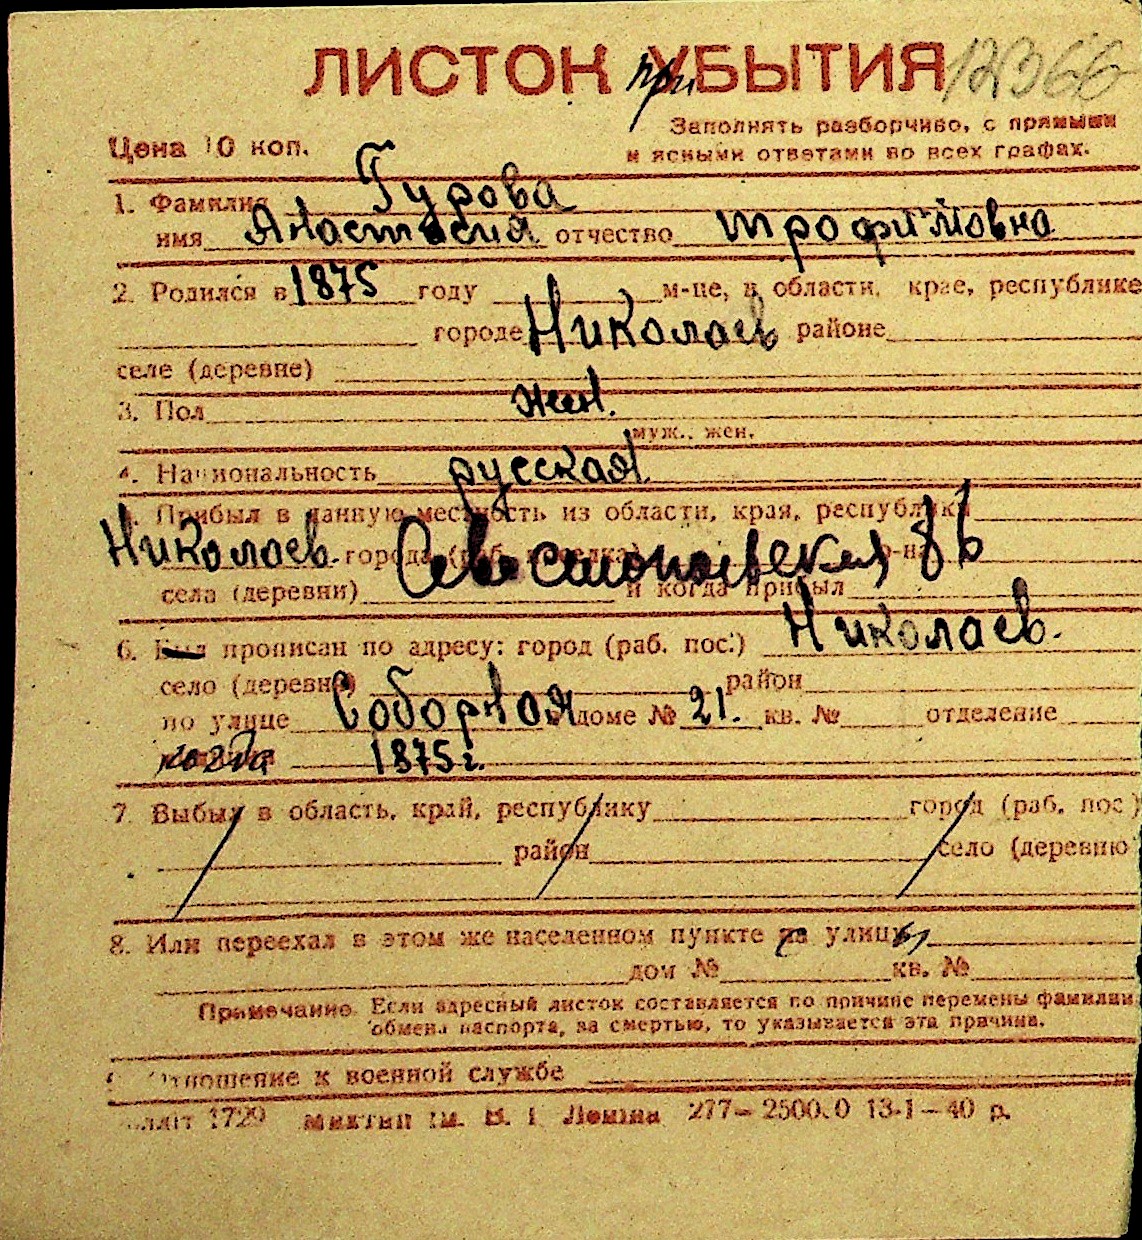 ЛИСТОК при УБЫТИЯ 12366
Цена 10 коп.
Заполнять разборчиво, с прямыми
и ясными ответами во всех графах.
1. Фамилия Гурова
имя Анастасия отчество Трофимовна
2. Родился в 1875 году м-це, в области, крае, республике
городе Николаев районе
селе (деревне)
3. Пол жен.
муж., жен.
4. Национальность русская
Прибыл в данную местность из области, края, республики
Николаев. города (раб. поселка) Севастопольская 86 р-на
села (деревни) и когда прибыл
6. Был прописан по адресу: город (раб. пос.) Николаев.
село (деревня) район
по улице Соборная доме № 21. кв. № отделение
когда 1875 г.
7. Выбыл в область, край, республику город (раб. пос.)
район село (деревню
8. Или переехал в этом же населенном пункте на улицу
дом № кв. №
Примечание. Если адресный листок составляется по причине перемены фамилии
обмена паспорта, за смертью, то указывается эта причина.
Отношение к военной службе
1729 им. В. И Ленина 277—2500.0 13-1—40 р.